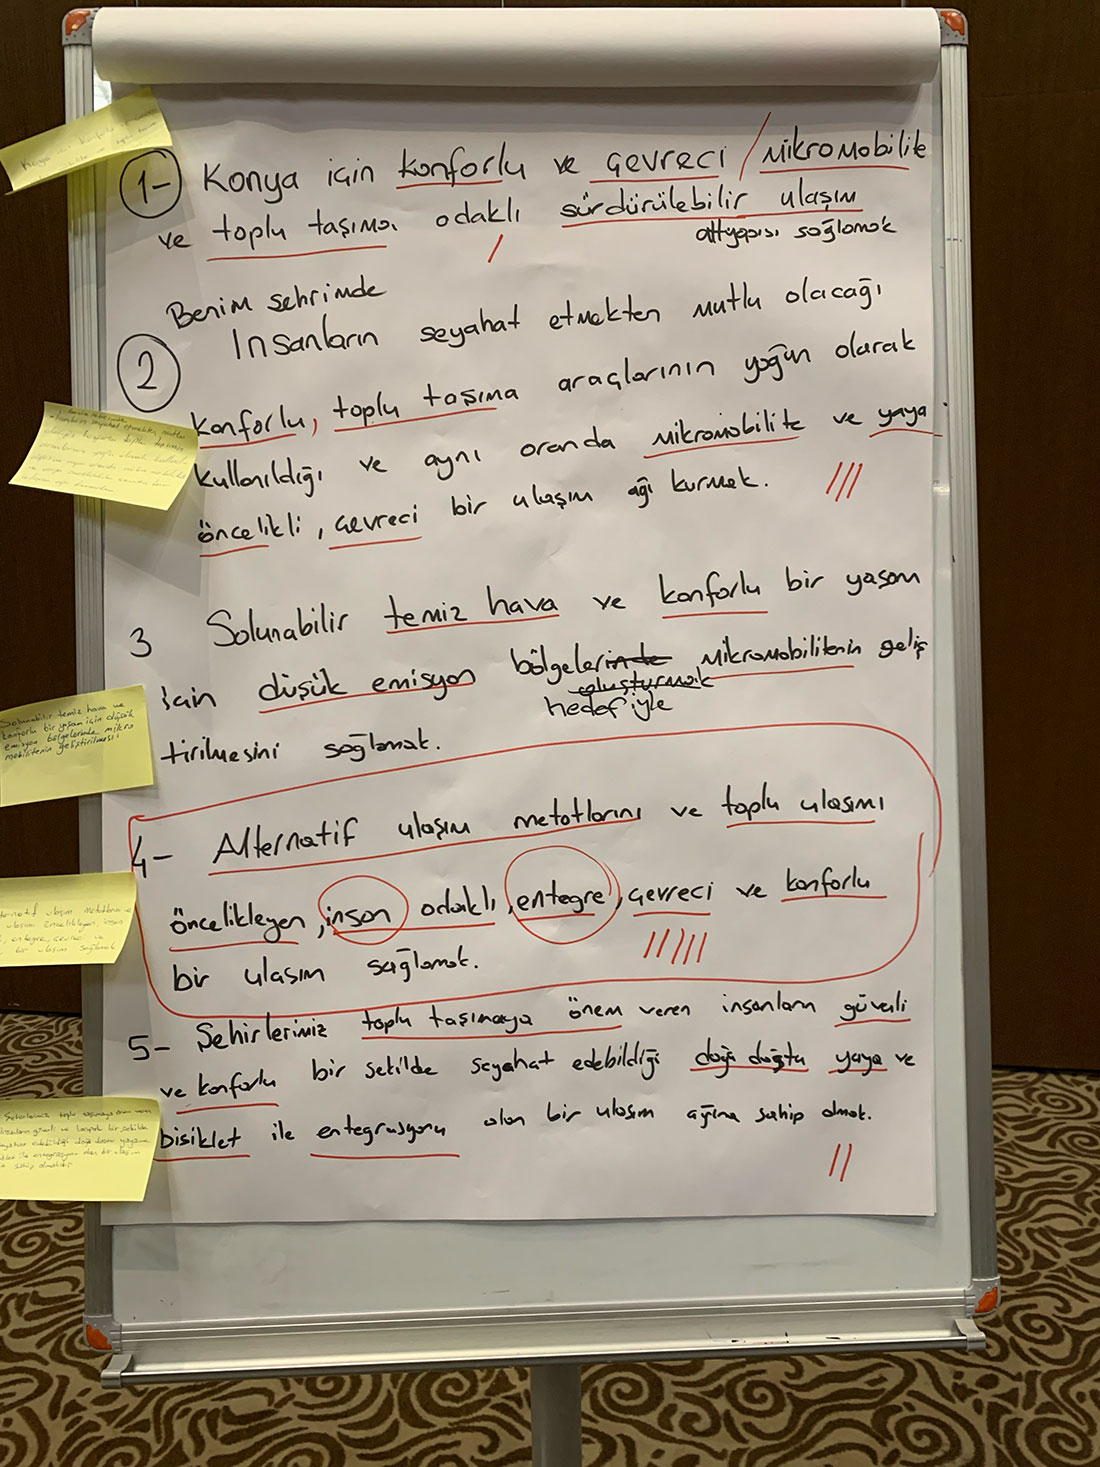 1- Konya için konforlu ve çevreci / Mikromobilite
ve toplu taşıma odaklı sürdürülebilir ulaşım
altyapısı sağlamak
Benim şehrimde
2 İnsanların seyahat etmekten mutlu olacağı
konforlu, toplu taşıma araçlarının yoğun olarak
kullanıldığı ve aynı oranda mikromobilite ve yaya
öncelikli, çevreci bir ulaşım ağı kurmak.
3 Solunabilir temiz hava ve konforlu bir yaşam
için düşük emisyon bölgelerinde mikromobilitenin geliş
oluşturmak
hedefiyle
tirilmesini sağlamak.
4- Alternatif ulaşım metotlarını ve toplu ulaşımı
önceliklleyen, insan odaklı, entegre, çevreci ve konforlu
bir ulaşım sağlamak.
5- Şehirlerimiz toplu taşımaya önem veren insanların güvenli
ve konforlu bir şekilde seyahat edebildiği doğa dostu yaya ve
bisiklet ile entegrasyonu olan bir ulaşım ağına sahip olmak.
Solunabilir temiz hava ve
konforlu bir yaşam için düşük
emisyon bölgelerinde mikro
mobilitenin geliştirilmesi